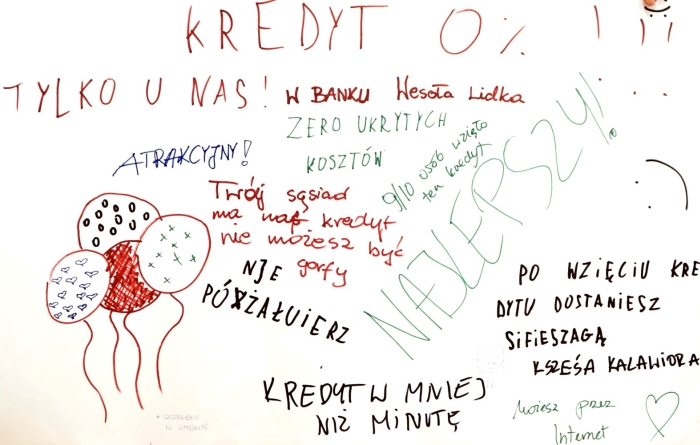 KREDYT 0% ! ! ! !
TYLKO U NAS! W BANKU Wesoła Lidka
ZERO UKRYTYCH
KOSZTÓW
ATRAKCYJNY!
9/10 osób wzięło
ten kredyt
NAJLEPSZY!
Twój sąsiad
ma kredyt
nie możesz być
gorszy
NJE
PÓŻAŁUIERZ
PO WZIĘCIU KRE
DYTU DOSTANIESZ
SIFIESZAGĄ
KSZEŚA KALAWIORA
KREDYT W MNIEJ
NIŻ MINUTĘ
Możesz przez
Internet
W UMOWIE